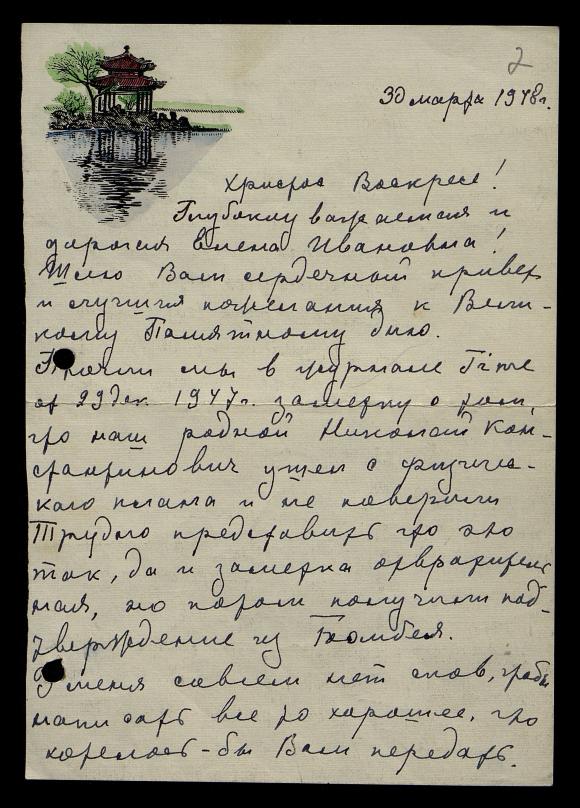 2
30 марта 1948 г.
Христос Воскресе!
Глубоко уважаемая и
дорогая Елена Ивановна!
Шлю Вам сердечный привет
и лучшия пожелания к Вели-
кому Памятному Дню.
Прочли мы в журнале Time
от 29 дек. 1947 г. заметку о том,
что наш родной Николай Кон-
стантинович ушел с физиче-
кого плана и не поверили
Трудно представить что это
так, да и заметка отвратитель-
ная, но потом получили под-
тверждение из Бомбея.
У меня совсем нет слов, чтобы
написать все то хорошее, что
хотелось-бы Вам передать.